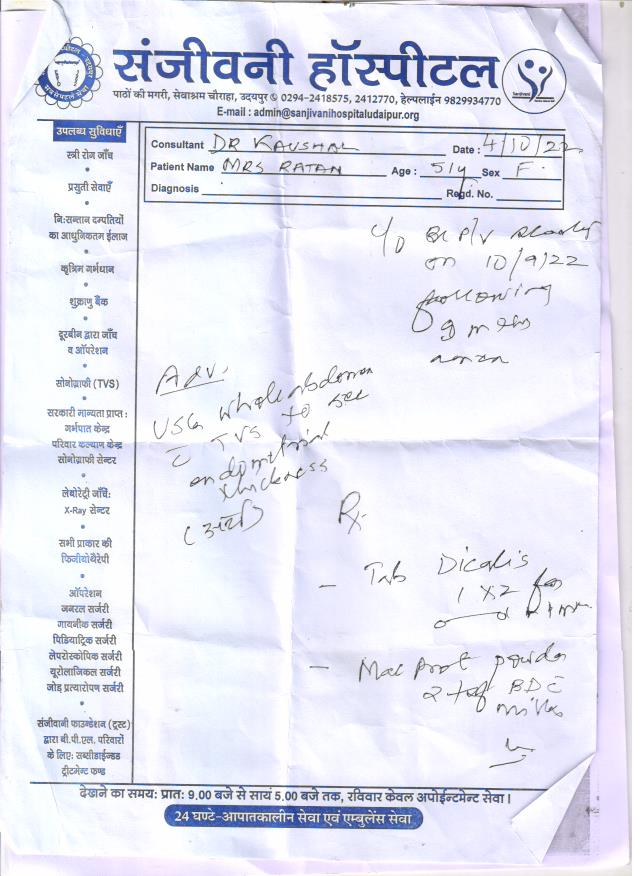 संजीवनी हॉस्पीटल
पाठों की मगरी, सेवाश्रम चौराहा, उदयपुर 0294-2418575, 2412770, हेल्पलाईन 9829934770
E-mail : admin@sanjivanihospitaludaipur.org
उपलब्ध सुविधाएँ
स्त्री रोग जाँच
प्रसुती सेवाएँ
नि:सन्तान दम्पतियों
का आधुनिकतम ईलाज
कृत्रिम गर्भधान
शुक्राणु बैंक
दूरबीन द्वारा जाँच
व ऑपरेशन
सोनोग्राफी (TVS)
सरकारी मान्यता प्राप्त :
गर्भपात केन्द्र
परिवार कल्याण केन्द्र
सोनोग्राफी सेन्टर
लेबोरेट्री जाँच:
X-Ray सेन्टर
सभी प्रकार की
फिजीयोथैरेपी
ऑपरेशन
जनरल सर्जरी
गायनीक सर्जरी
पिडियाट्रिक सर्जरी
लेपरोस्कोपिक सर्जरी
यूरोलाजिकल सर्जरी
जोड़ प्रत्यारोपण सर्जरी
संजीवनी फाउन्डेशन (ट्रस्ट)
द्वारा बी.पी.एल. परिवारों
के लिए: सब्सीडाईज्डड
ट्रीटमेन्ट फण्ड
Consultant DR KAUSHAL Date : 4/10/22
Patient Name MRS RATAN Age : 51y Sex F
Diagnosis Regd. No.
C/O P/V
on 10/9/22
following
9 mths
Adv.
USG whole abdomen
c TVS to see
endometrial
thickness
Rx
- Tab Dicalis
1 x 2 for
- Mac prot powder
2 tsf BD c
milk
देखने का समय: प्रात: 9.00 बजे से सायं 5.00 बजे तक, रविवार केवल अपोईन्टमेन्ट सेवा।
24 घण्टे-आपातकालीन सेवा एवं एम्बुलेंस सेवा